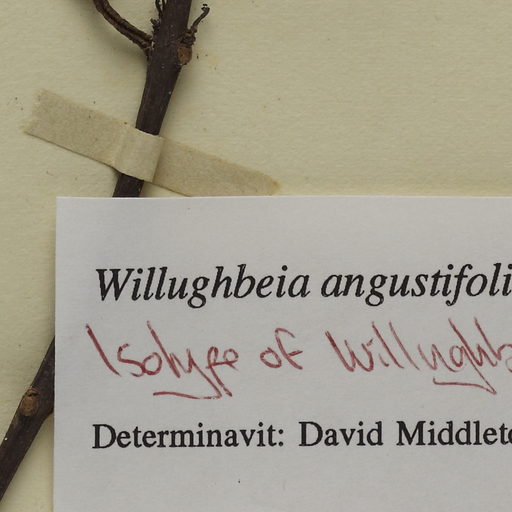 Willughbeia angustifoli
Isotype of Willughb
Determinavit: David Middleto